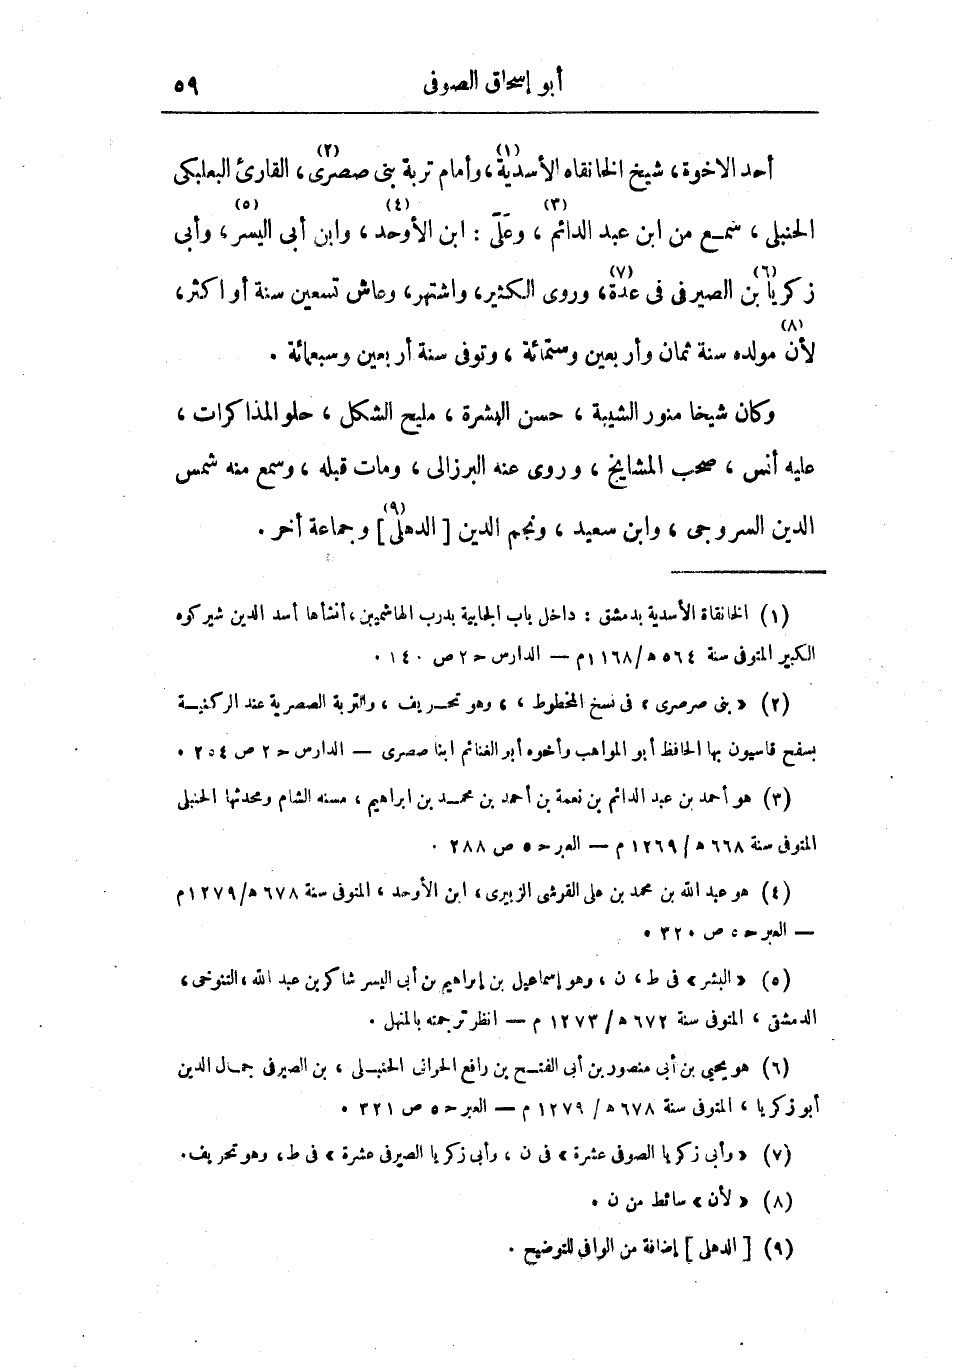 أبو إسحاق الصوفى ٥٩
أحد الاخوة، شيخ الخانقاه الأسدية(١)، وأمام تربة بنى صصرى(٢)، القارئ البعلبكى
الحنبلى، سمع من ابن عبد الدائم(٣)، وعَلَىّ: ابن الأوحد(٤)، وابن أبى اليسر(٥)، وأبى
زكريا(٦) بن الصيرفى فى عدة(٧)، وروى الكثير، واشتهر، وعاش تسعين سنة أو اكثر،
لأن(٨) مولده سنة ثمان وأربعين وستمائة، وتوفى سنة أربعين وسبعمائة.
وكان شيخا منور الشيبة، حسن البشرة، مليح الشكل، حلو المذاكرات،
عليه أنس، صحب المشايخ، وروى عنه البرزالى، ومات قبله، وسمع منه شمس
الدين السروجى، وابن سعيد، ونجم الدين [الدهلى](٩) وجماعة أخر.
(١) الخانقاة الأسدية بدمشق: داخل باب الجابية بدرب الهاشميين، أنشأها أسد الدين شيركوه
الكبير المتوفى سنة ٥٦٤ ه/١١٦٨م — الدارس ح٢ ص ١٤٠.
(٢) «بنى صرصرى» فى نسخ المخطوط،، وهو تحريف، والتربة الصصرية عند الركنية
بسفح قاسيون بها الحافظ أبو المواهب وأخوه أبو الغنائم ابنا صصرى — الدارس ح٢ ص ٢٥٤.
(٣) هو أحمد بن عبد الدائم بن نعمة بن أحمد بن محمد بن ابراهيم، مسنه الشام ومحدثها الحنبلى
المتوفى سنة ٦٦٨ ه/١٢٦٩ م — العبر ح٥ ص ٢٨٨.
(٤) هو عبد الله بن محمد بن على القرشى الزبيرى، ابن الأوحد، المتوفى سنة ٦٧٨ ه/١٢٧٩م
— العبر ح٥ ص ٣٢٠.
(٥) «البشر» فى ط، ن، وهو إسماعيل بن إبراهيم بن أبى اليسر شاكر بن عبد الله، التنوخى،
الدمشقى، المتوفى سنة ٦٧٢ ه/١٢٧٣ م — انظر ترجمته بالمنهل.
(٦) هو يحيى بن أبى منصور بن أبى الفتح بن رافع الحرانى الحنبلى، بن الصيرفى جمال الدين
أبو زكريا، المتوفى سنة ٦٧٨ ه/١٢٧٩ م — العبر ح٥ ص ٣٢١.
(٧) «وأبى زكريا الصوفى عشرة» فى ن، وأبى زكريا الصيرفى عشرة» فى ط، وهو تحريف.
(٨) «لأن» ساقط من ن.
(٩) [الدهلى] إضافة من الوافى للتوضيح.